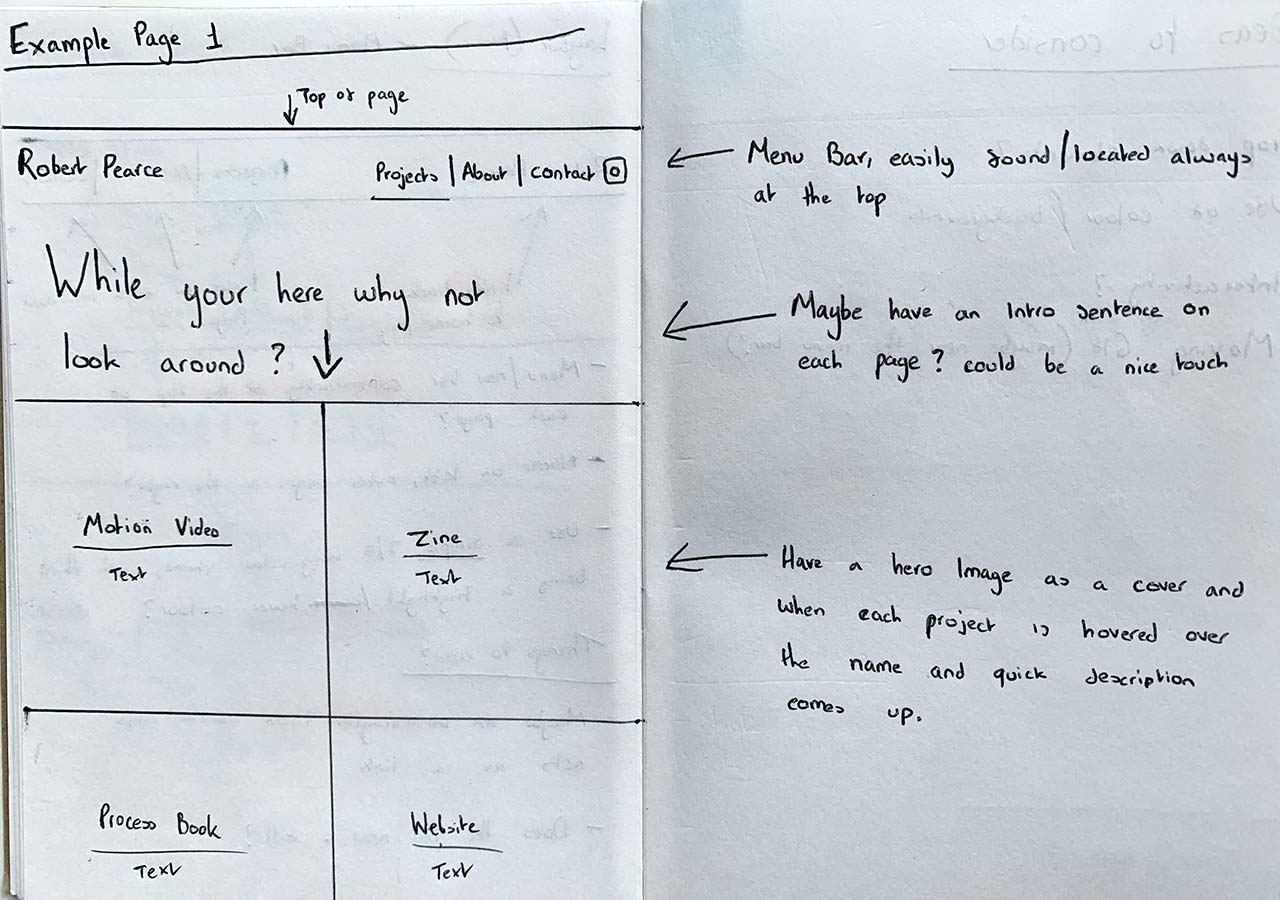 Example Page 1
Top of page
Robert Pearce
Projects | About | contact
While your here why not
look around ?
Motion Video
Text
Zine
Text
Process Book
Text
Website
Text
Menu Bar, easily found/located always
at the top
Maybe have an Intro sentence on
each page? could be a nice touch
Have a hero Image as a cover and
when each project is hovered over
the name and quick description
comes up.